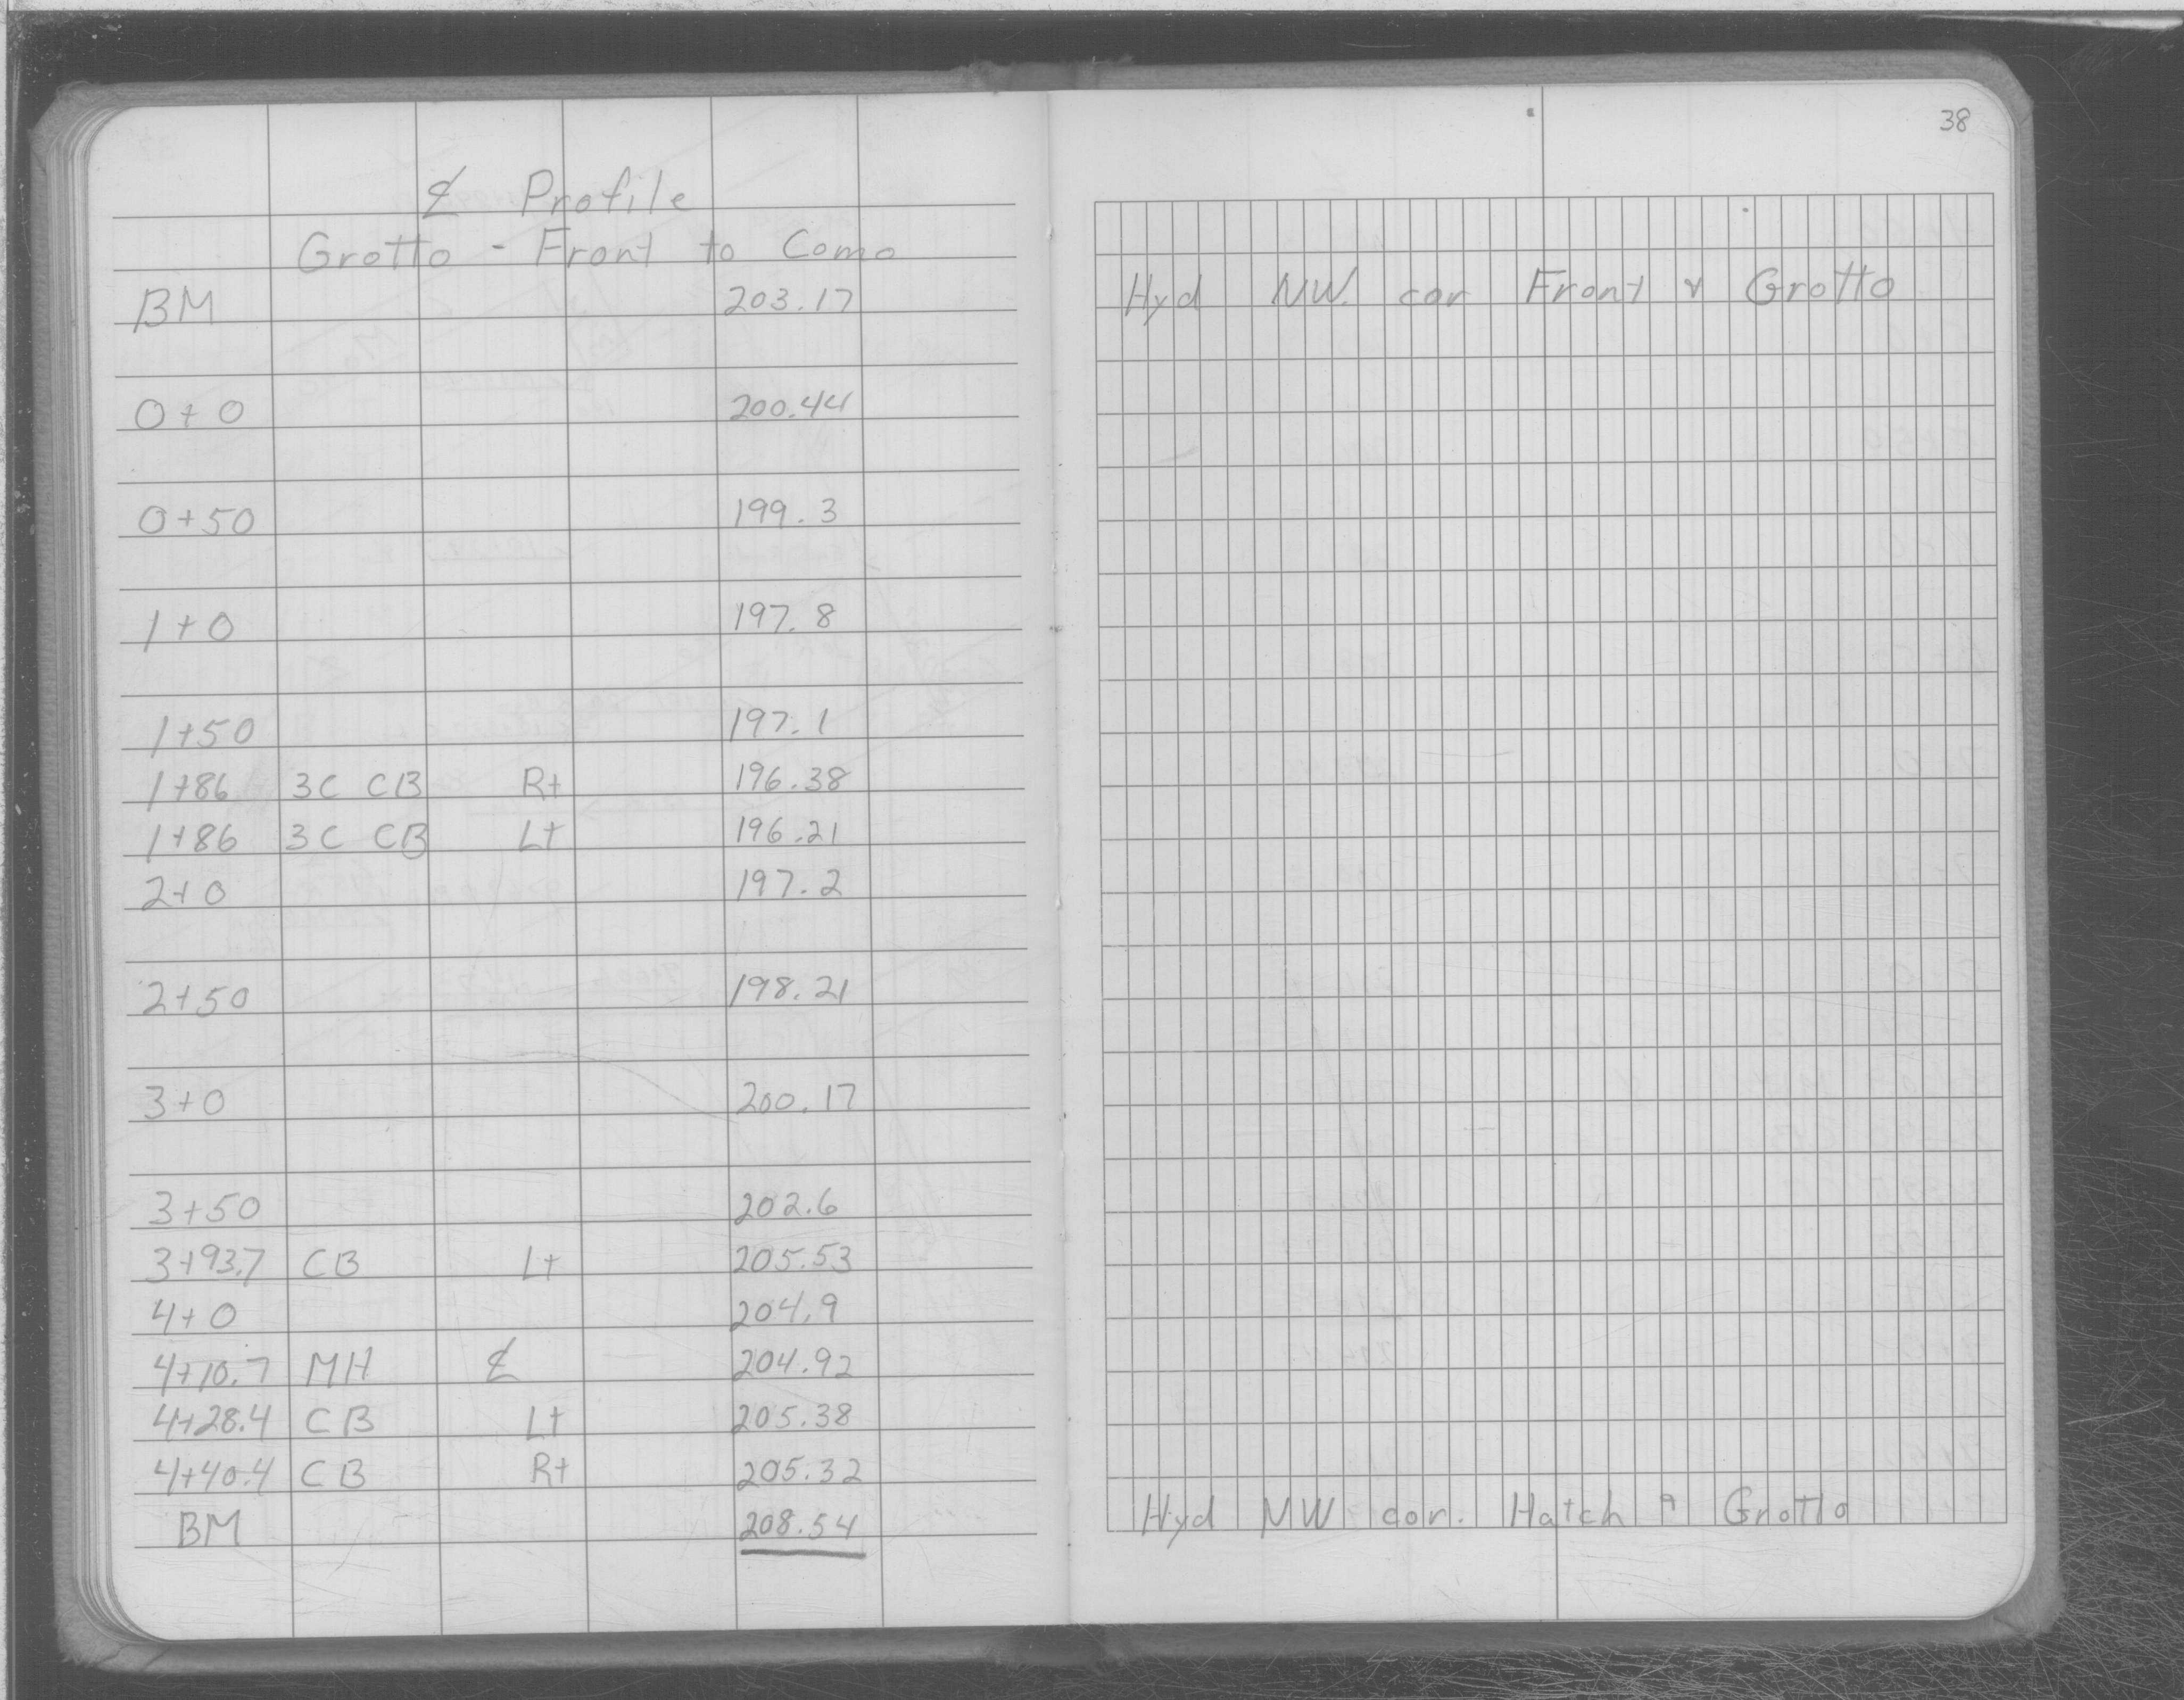 38
℄ Profile
Grotto - Front to Como
BM 203.17 Hyd NW. cor Front & Grotto
0+0 200.44
0+50 199.3
1+0 197.8
1+50 197.1
1+86 3C CB Rt 196.38
1+86 3C CB Lt 196.21
2+0 197.2
2+50 198.21
3+0 200.17
3+50 202.6
3+93.7 CB Lt 205.53
4+0 204.9
4+10.7 MH ℄ 204.92
4+28.4 CB Lt 205.38
4+40.4 CB Rt 205.32
BM 208.54 Hyd NW cor. Hatch & Grotto